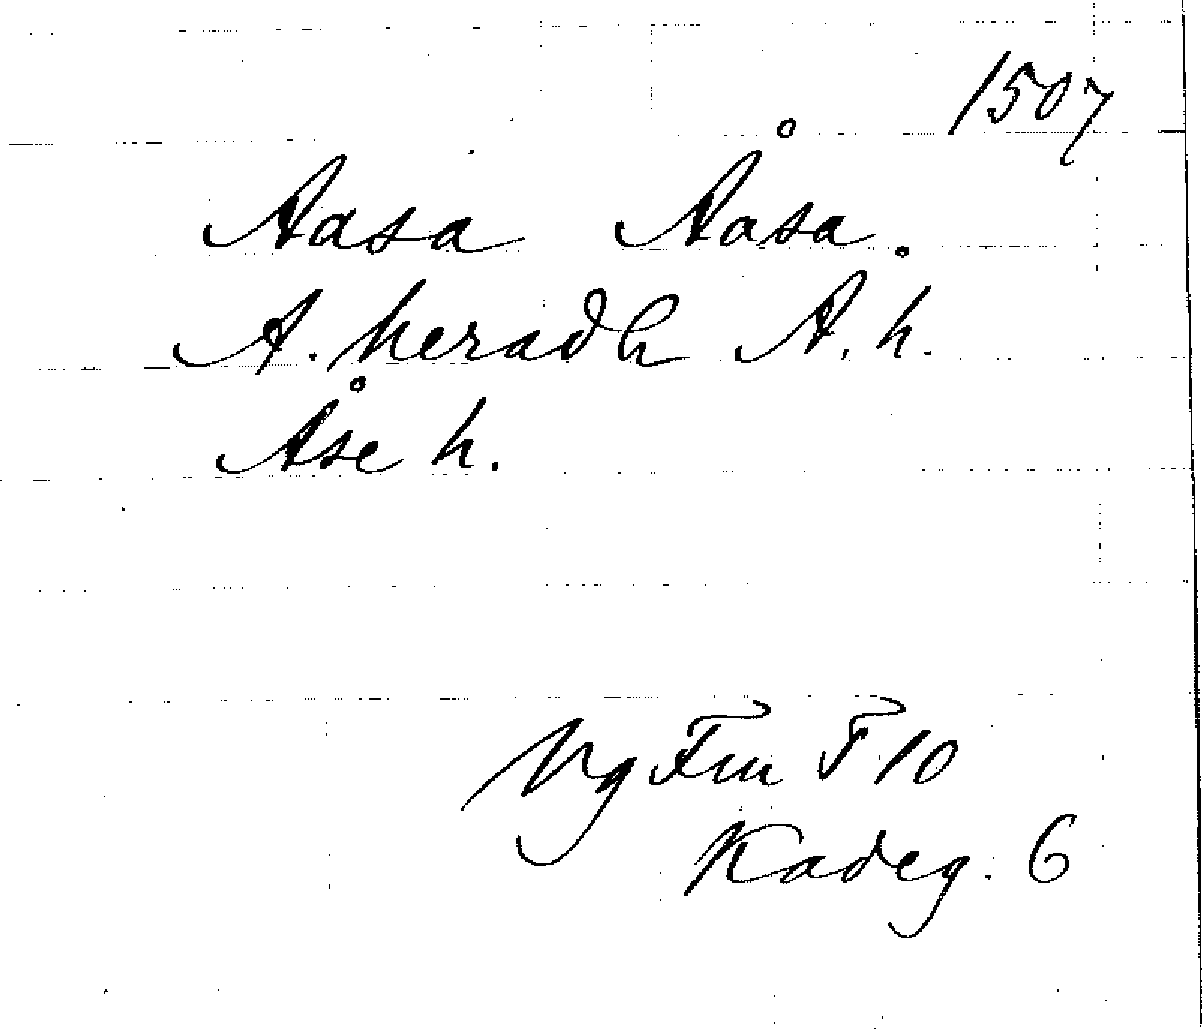 1507
Aasa Åasa.
A. heradh A. h.
Åse h.
Vg Fru F 10
Kadeg. 6